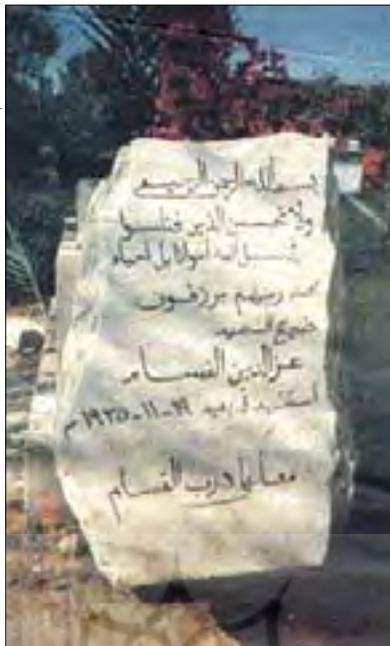 بسم الله الرحمن الرحيم
ولا تحسبن الذين قتلوا
في سبيل الله أمواتا بل أحياء
عند ربهم يرزقون
ضريح الشهيد
عز الدين القسام
استشهد في يعبد ١٩-١١-١٩٣٥ م
معا درب القسام